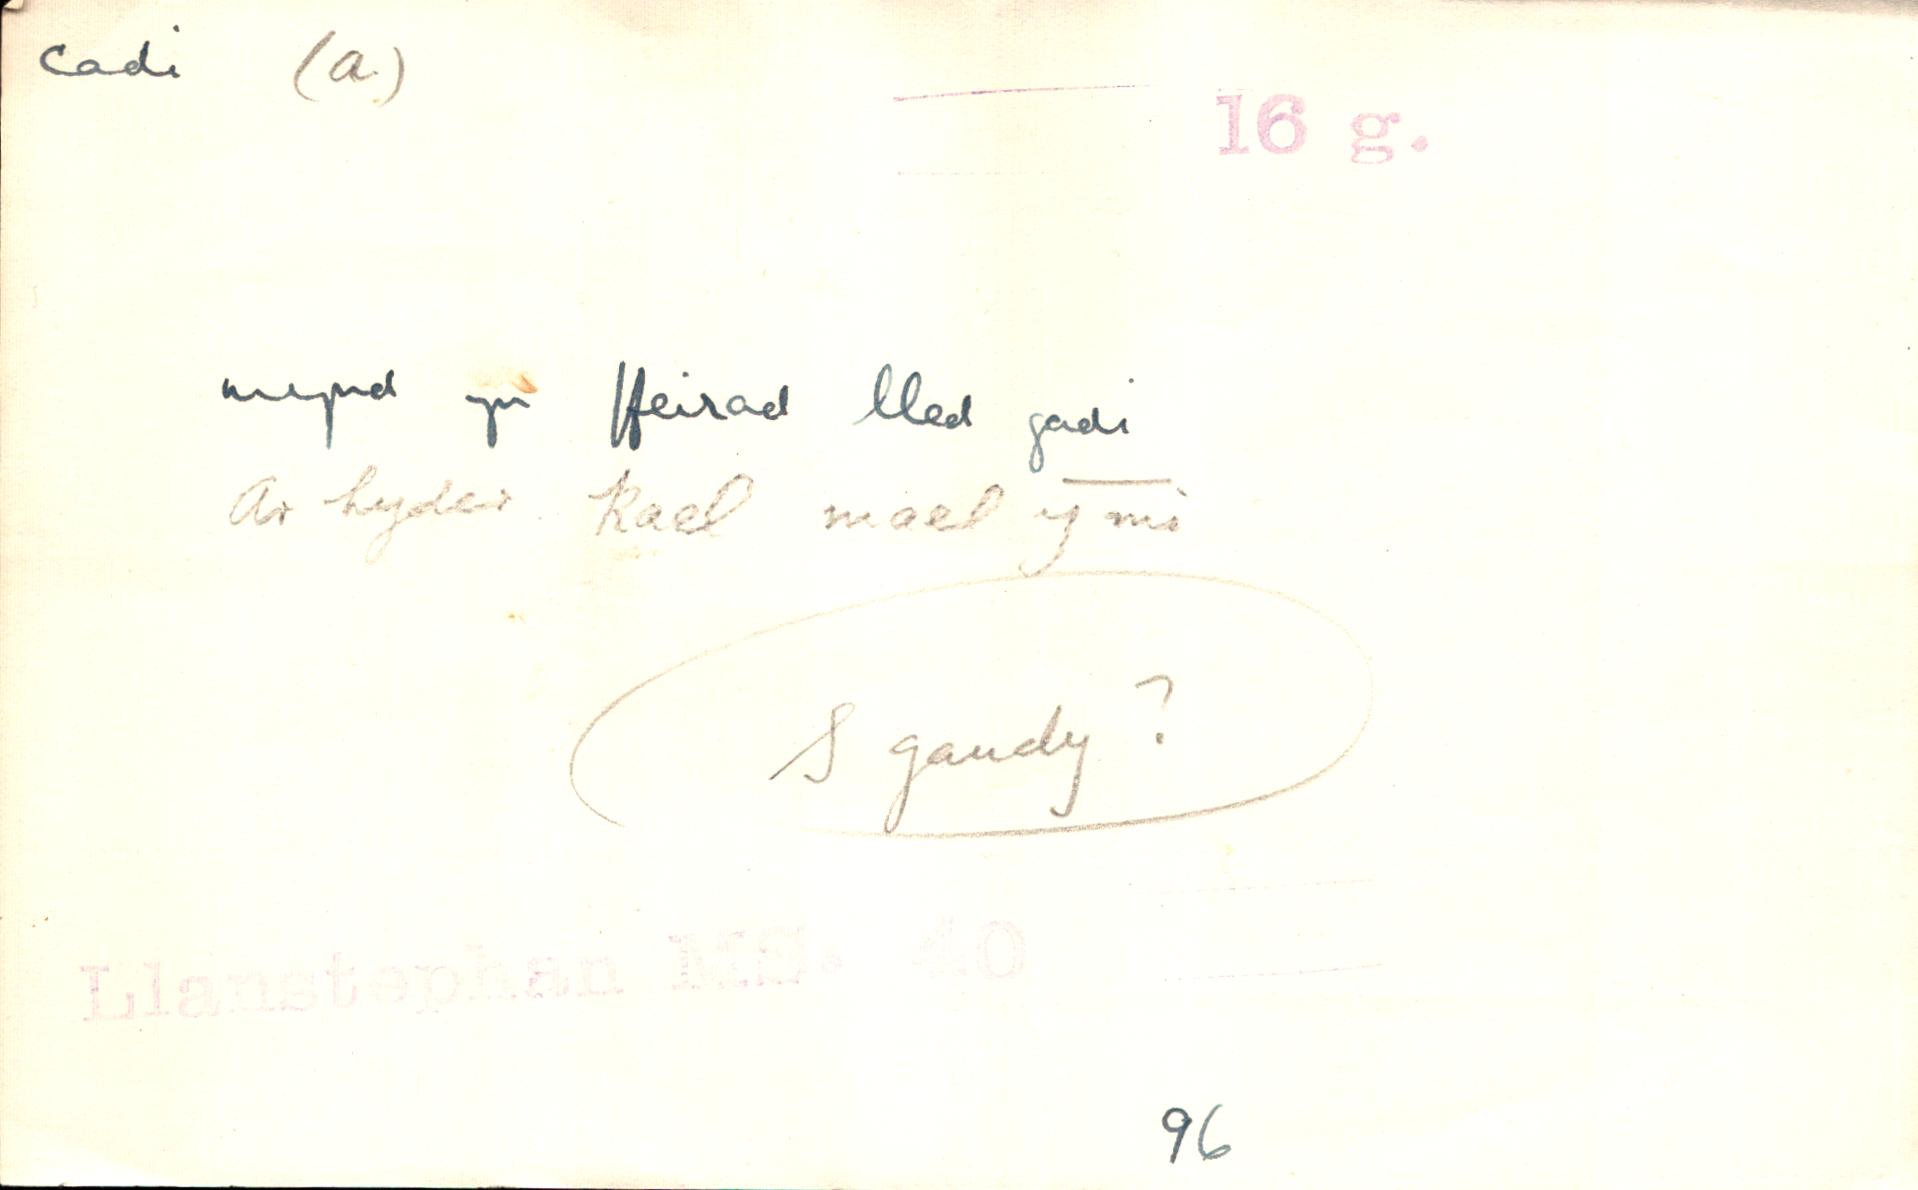 cadi (a.)
16 g.
mynd yn ffeirad lled gadi
Ar hyder kael mael ymi
S gaudy?
Llanstephan MS. 40
96